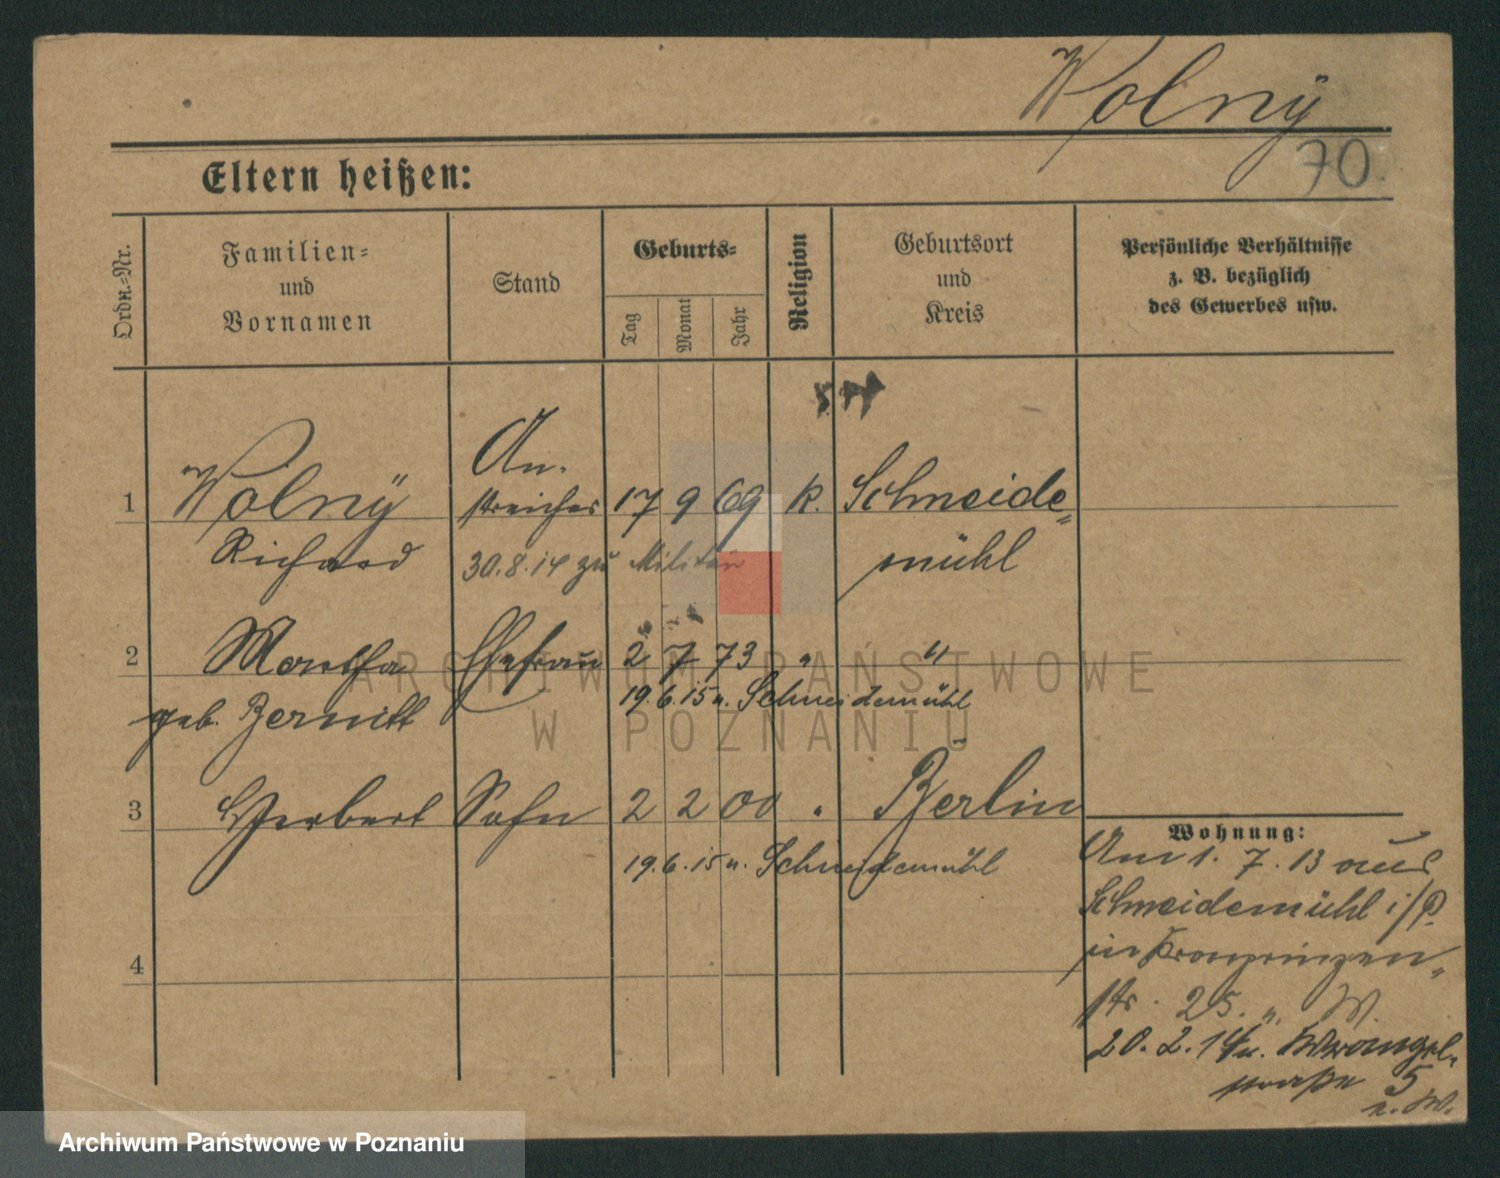 Wolnÿ
70
Eltern heißen:
Ordn.-Nr.
Familien-
und
Vornamen
Stand
Geburts-
Tag
Monat
Jahr
Religion
Geburtsort
und
Kreis
Persönliche Verhältnisse
z. B. bezüglich
des Gewerbes usw.
An-
1 Wolnÿ streicher 17 9 69 k. Schneide-
Richard 30.8.14 zu Militär mühl
2 Martha Ehefrau 2 7 73 " "
geb. Bernitt 19.6.15 n. Schneidemühl
3 Herbert Sohn 2 2 00 " Berlin
19.6.15 n. Schneidemühl
4
Wohnung:
Am 1. 7. 13 aus
Schneidemühl i/P.
in Kronprinzen-
str. 25. n. W.
20. 2. 14 n. Wrangel-
straße 5
n. W.
ARCHIWUM PAŃSTWOWE
W POZNANIU
Archiwum Państwowe w Poznaniu